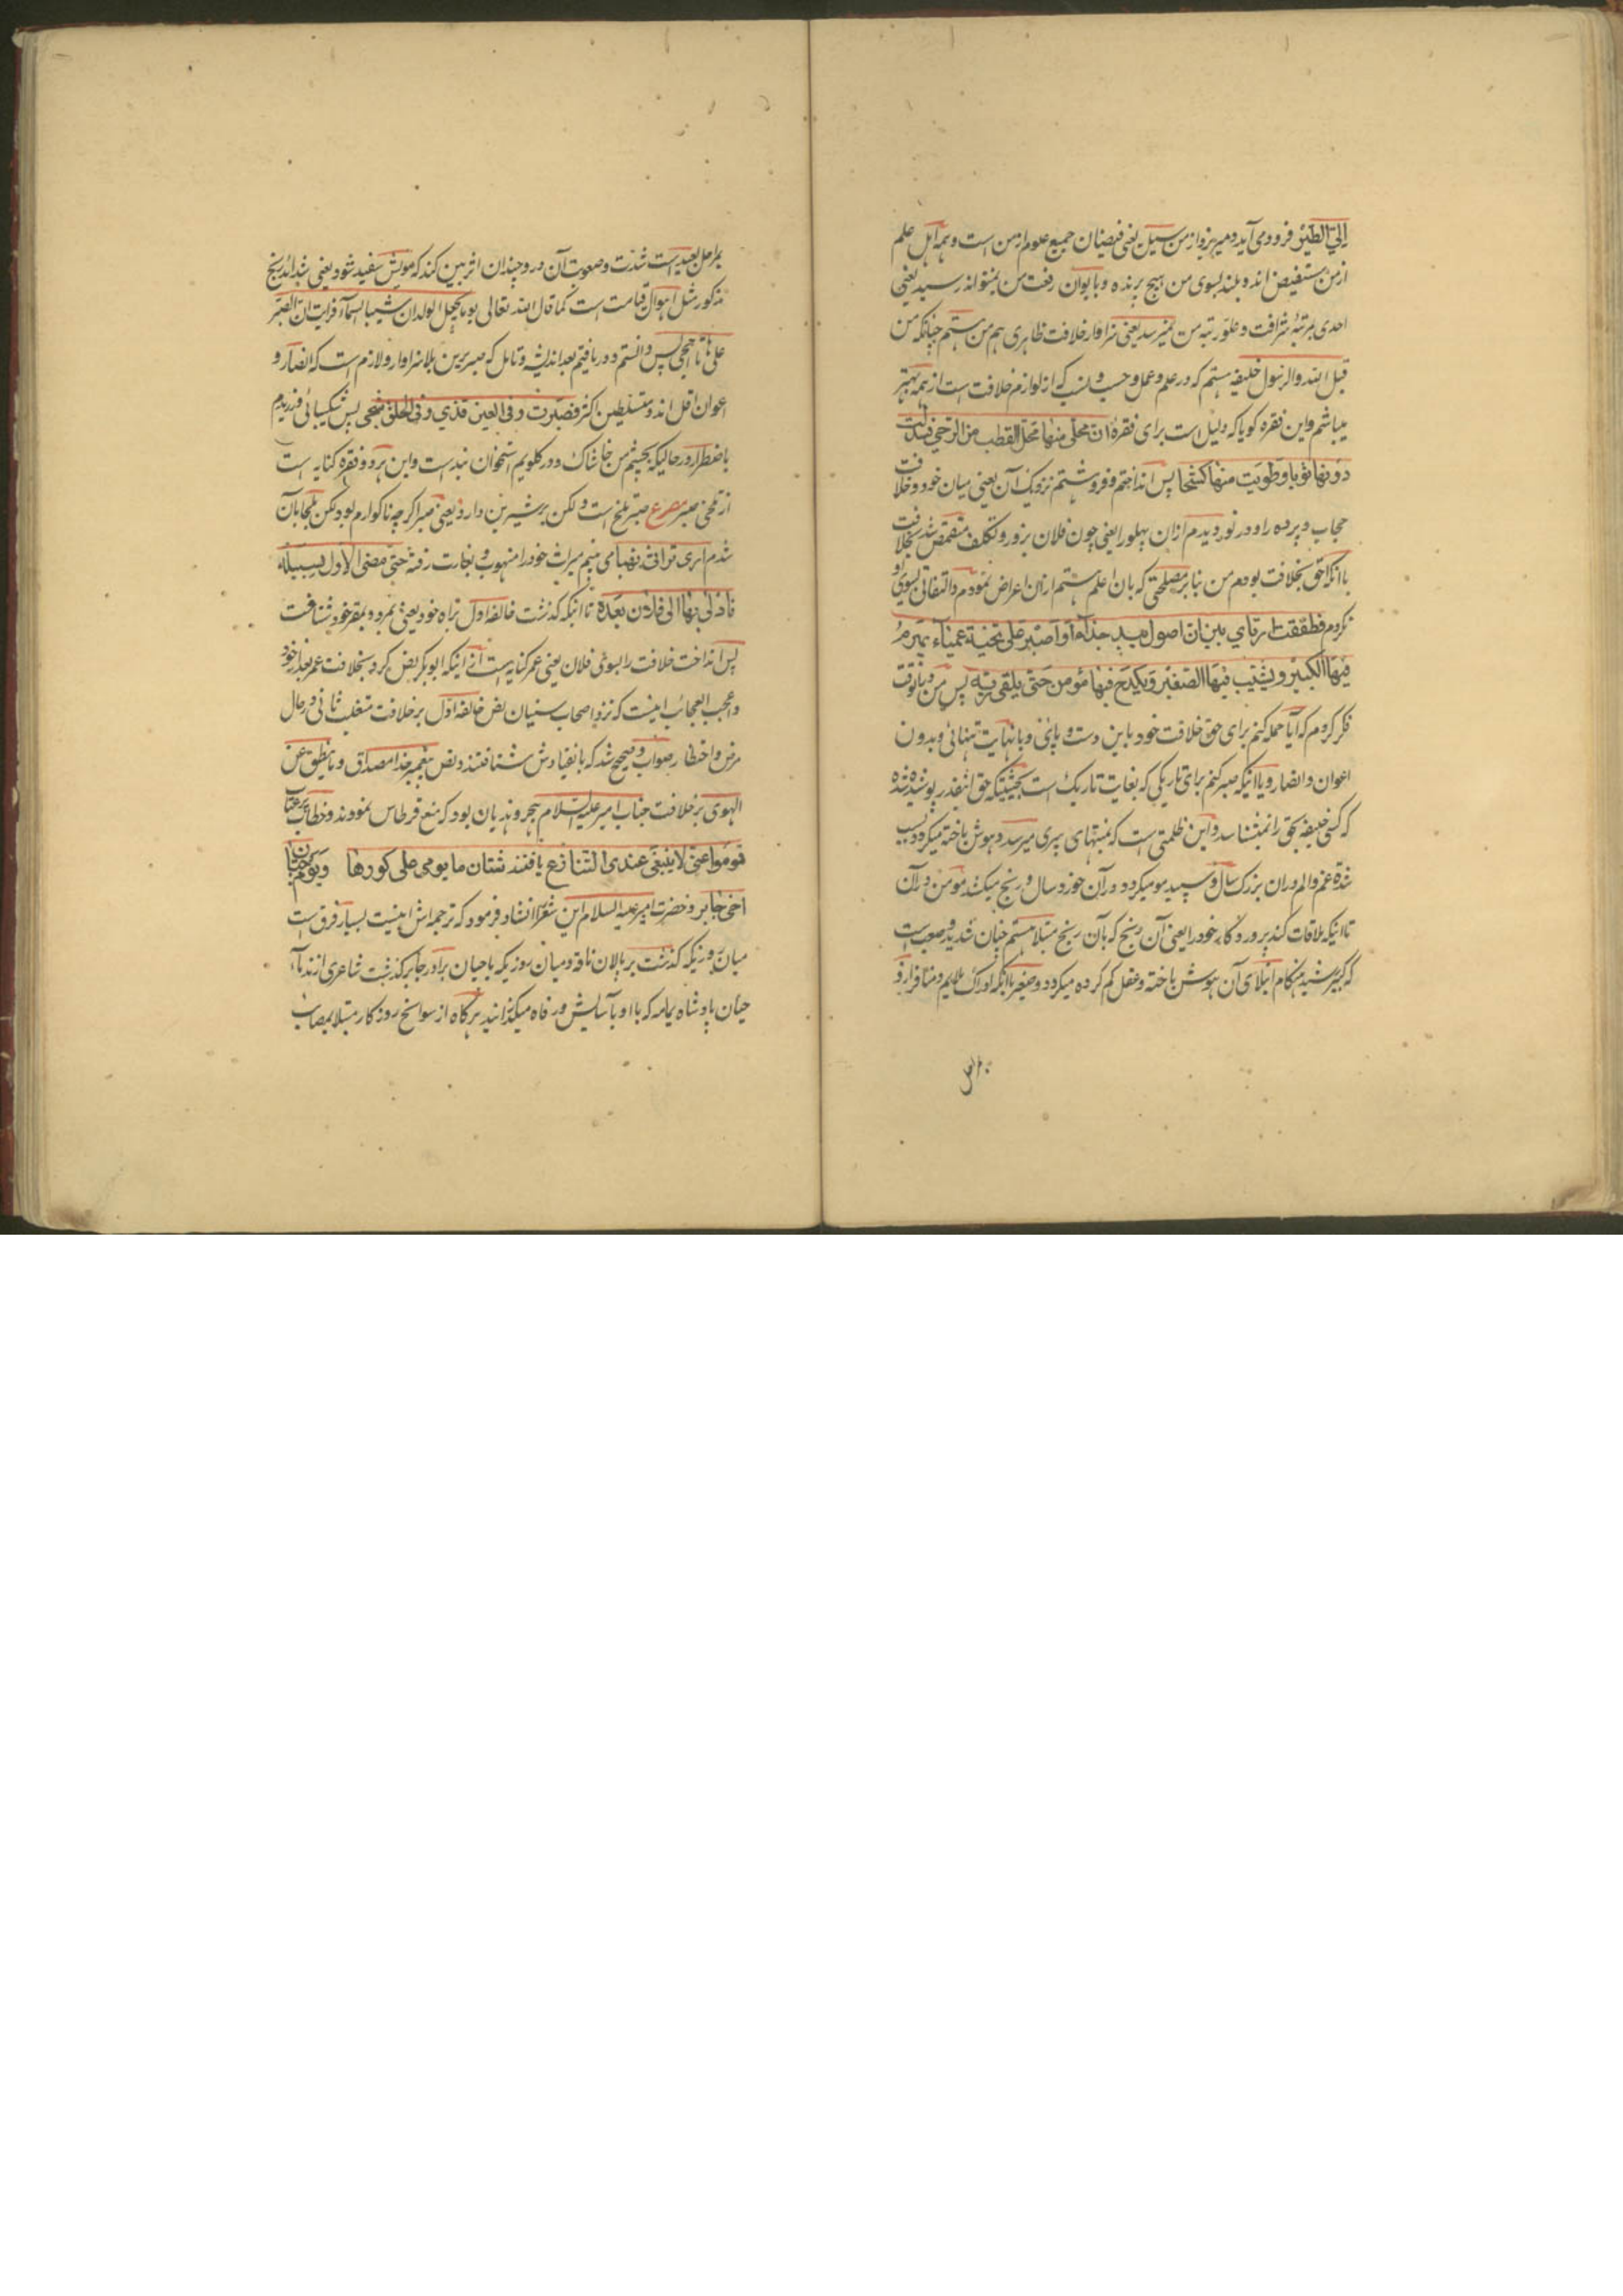 الیّ الطیر فرود می آید و میریزد از من سیل یعنی فیضان جمیع علوم از من است و همه اهل علم
از من مستفیض اند و بلند بسوی من هیچ پرنده و بایوان رفعت من نمیتواند رسید یعنی
احدی بمرتبهٔ شرافت و علو رتبه من نمیرسد یعنی سزاوار خلافت ظاهری هم من هستم چنانکه من
قبل الله والرسول خلیفه هستم که در علم و عمل و حسب و نسب که از لوازم خلافت است از همه بهتر
میباشم و این فقره کویا که دلیل است برای فقرهٔ ان محلی منها محل القطب من الرحی فسدلت
دونها ثوبا و طویت منها کشحا پس انداختم و فروهشتم نزدیک آن یعنی میان خود و خلافت
حجاب و پرده را و در نوردیدم ازان پهلو را یعنی چون فلان بزور و تکلف متقمص شد بخلافت
با آنکه احق بخلافت بودم من بنابر مصلحتی که بان اعلم هستم ازان اعراض نمودم و التفاتی بسوی او
نکردم فطفقت ارتای بین ان اصول بید جذاء او اصبر علی طخیة عمیاء یهرم
فیها الکبیر و یشیب فیها الصغیر و یکدح فیها مؤمن حتی یلقی ربه پس من دران وقت
فکر کردم که آیا حمله کنم برای حق خلافت خود باین دست و پائی و با نهایت تنهائی و بدون
اعوان و انصار و یا اینکه صبر کنم برای تاریکی که بغایت تاریک است بحیثیتیکه حق انقدر پوشیده شده
که کسی خلیفه بحق را نمیشناسد و این ظلمتی است که بمنتهای پیری میرسد و هوش باخته میکردد بسبب
شدة غم و الم دران بزرک سال و سپید مو میکردد در آن خورد سال و رنج میکشد مؤمن در آن
تا اینکه ملاقات کند پروردگار خود را یعنی آن رنج که بآن رنج مبتلا هستم چنان شدید و صعب است
که کبیر شید هنکام ابتلای آن هوش باخته و عقل کم کرده میکردد و صغیر با آنکه ادراک ملایم و منافر ازو
بمراحل
بمراحل بعید است شدت و صعوبت آن درو چندان اثر بین کند که مویش سفید شود یعنی شداید رنج
مذکور مثل اهوال قیامت است کما قال الله تعالی یوما یجعل الولدان شیبا السماء فرایت ان الصبر
علی هاتا احجی پس دانستم و دریافتم بعد اندیشه و تامل که صبر برین بلا سزاوار و لازم است که انصار و
اعوان اقل اند و متسلطین اکثر فصبرت و فی العین قذی و فی الحلق شجی پس شکیبائی ورزیدم
باضطرار در حالیکه بچشم من خاشاک و در کلویم استخوان بند است و این هر دو فقره کنایه است
از تلخی صبر مصرع صبر تلخ است و لکن بر شیرین دارد یعنی صبر اکرچه ناکوارم بود لکن ملجا بآن
شدم اری تراثی نهبا می بینم میراث خود را منهوب و بغارت رفته حتی مضی الاول لسبیله
فادلی بها الی فلان بعده تا آنکه کذشت خالفه اول براه خود یعنی بمرد و بمقر خود شتافت
پس انداخت خلافت را بسوی فلان یعنی عمر کنایه است از اینکه ابو بکر نص کرد بخلافت عمر بعد از خود
و اعجب العجائب اینست که نزد اصحاب سنیان نص خالفه اول بر خلافت متغلب ثانی در حال
مرض و احتضار صواب و صحیح شد که بانقیادش شتافتند و نص پیغمبر خدا مصداق و ما ینطق عن
الهوی بر خلافت جناب امیر علیه السلام هجر و هذیان بود که منع قرطاس نمودند و خطاب
قوموا عنی لا ینبغی عندی التنازع یافتند شتان ما یومی علی کورها و یوم حیان
اخی جابر و حضرت امیر علیه السلام این شعر را انشاد فرمود که ترجمه اش اینست بسیار فرق است
میان روزیکه کذشت بر پالان ناقه و میان روزیکه با حیان برادر جابر کذشت شاعری از ندمآء
حیان پادشاه یمامه که با او بآسایش و رفاه میکذرانید هرکاه از سوانح روزکار مبتلا بمصائب